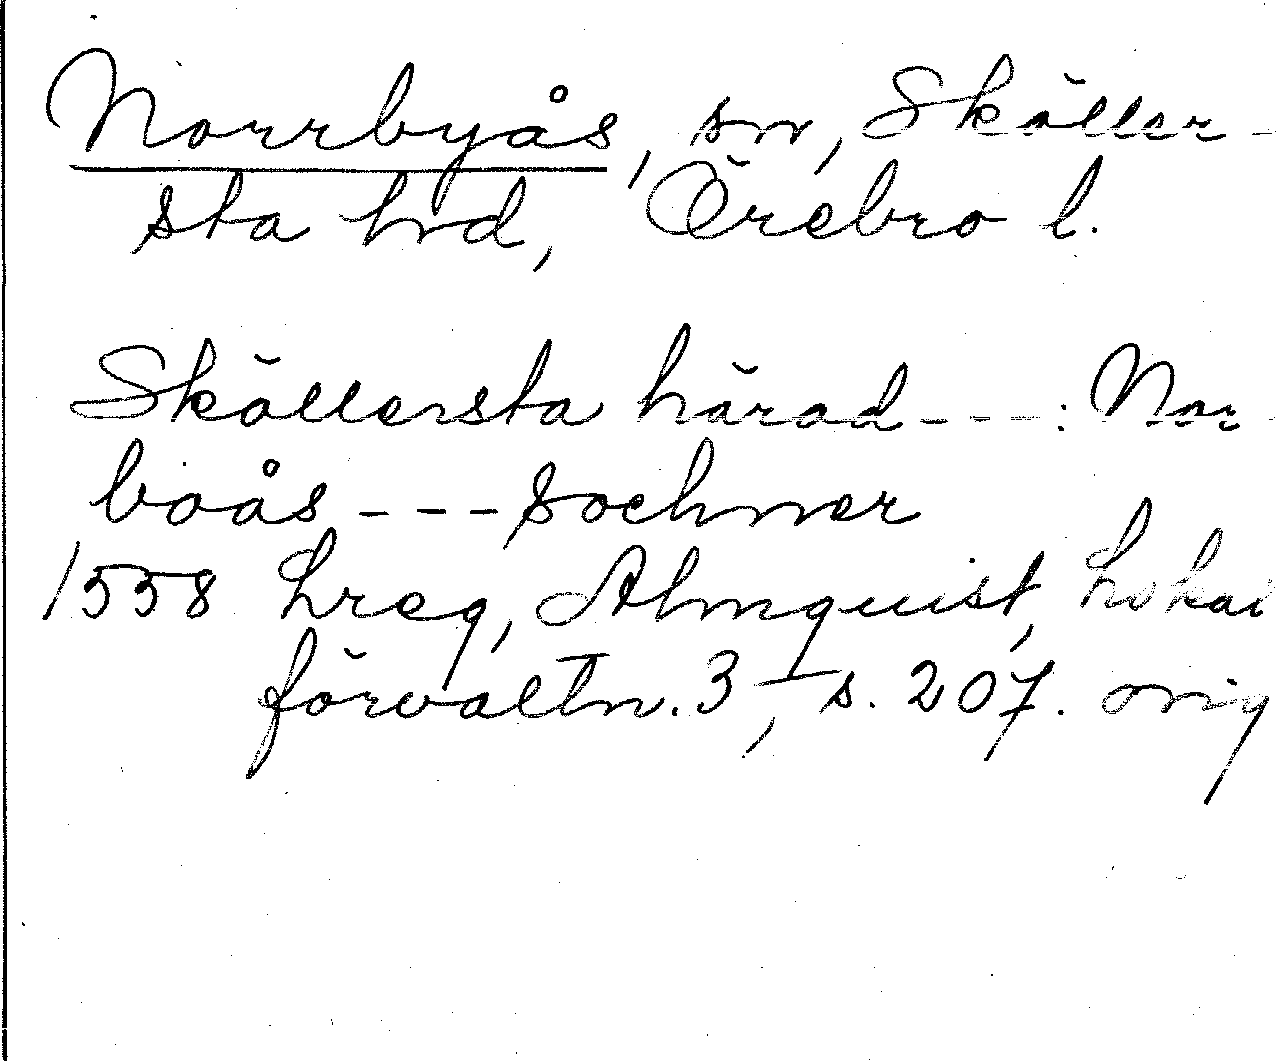 Norrbyås, sn, Sköller-
sta hrd, Örebro l.
Sköllersta härad - - - : Nor-
boås - - - Sochner
1558 Lreg, Almquist, Lokal
förvaltn. 3, s. 207. orig